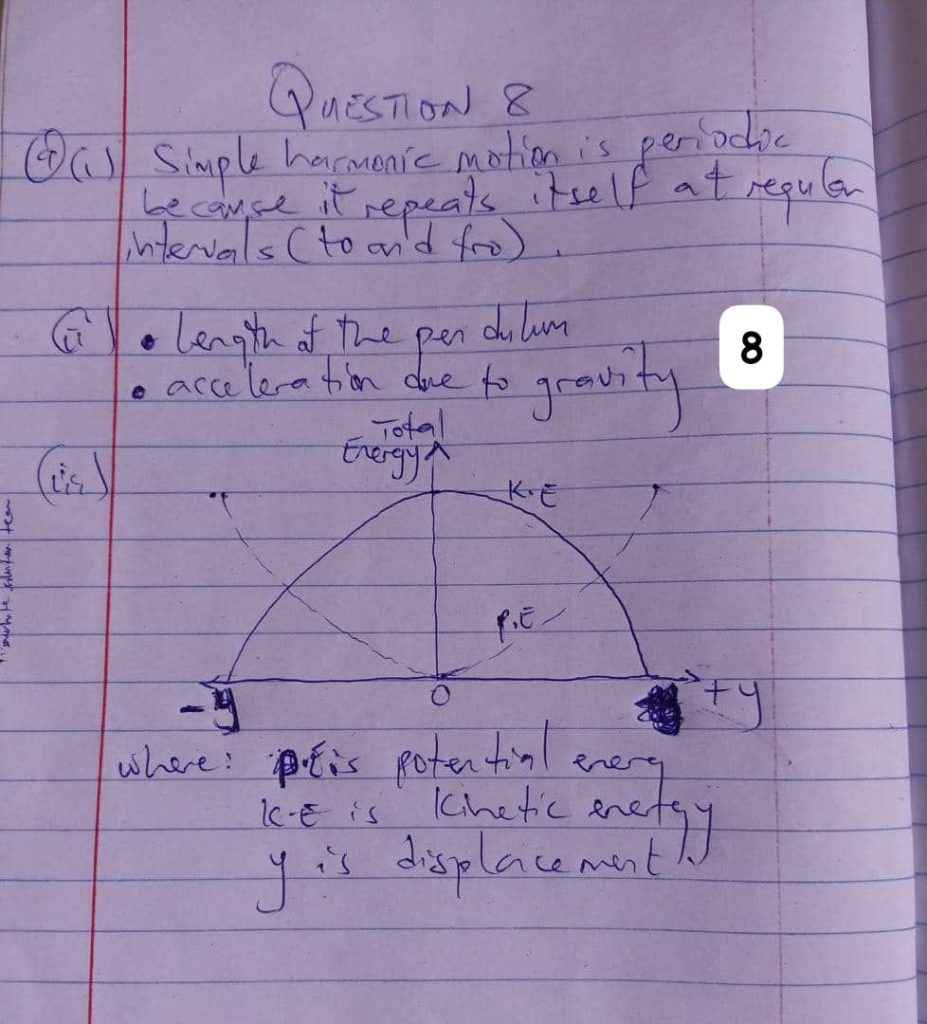 QUESTION 8
(i) Simple harmonic motion is periodic
because it repeats itself at regular
intervals (to and fro).
(ii) • Length of the pendulum
8
• acceleration due to gravity
Total
Energy
(iii)
K.E
P.E
-y
0
+y
where: P.E is potential energ
K.E is Kinetic energy
y is displacement.